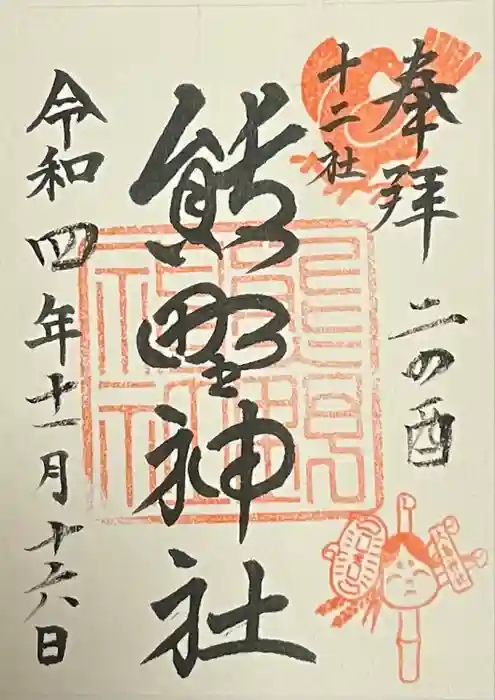 奉拝 二の酉
十二社
熊野神社
令和四年十一月十六日